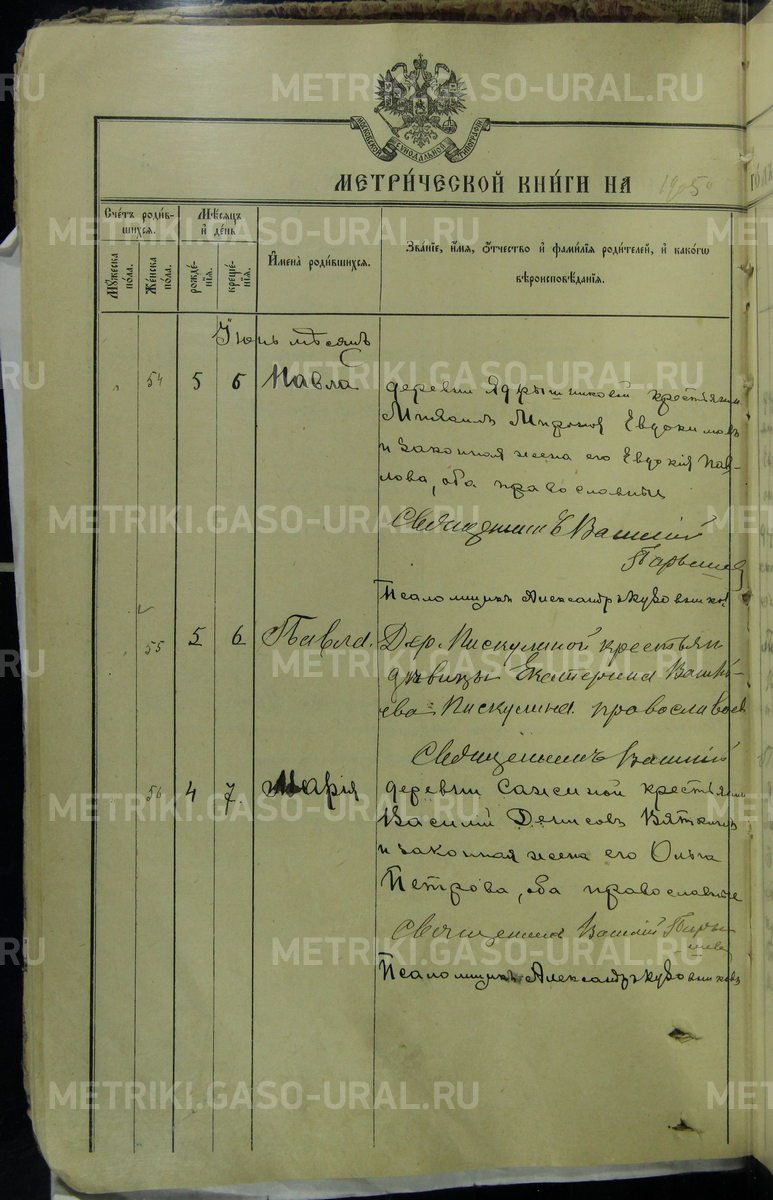 МОСКОВСКОЙ СѴНОДАЛЬНОЙ ТИПОГРАФІИ
МЕТРИ́ЧЕСКОЙ КНИ́ГИ НА 1905
Сче́тъ роди́в-
шихся.
Му́жеска
по́ла.
Же́нска
по́ла.
Мѣ́сяцъ
и҆ де́нь
рожде́-
нїя.
креще́-
нїя.
И҆мена̀ роди́вшихся.
Зва́нїе, и҆́мя, ѻ҆́тчество и҆ фами́лїя роди́телей, и҆ како́гѡ
вѣроисповѣ́данїя.
Іюнь мѣсяцъ
54 5 6 Павла деревни Ядрышниковой крестьянинъ
Михаилъ Мироновъ Евдокимовъ
и законная жена его Евдокія Пав-
лова, оба православные
Священникъ Василій
Парышев
Псаломщикъ Александръ
55 5 6 Павла. Дер. Пискулиной крестьян
дѣвицы Екатерина Василь-
ева Пискулина православной
Священникъ Василій
56 4 7. Марія деревни Сажиной крестьянинъ
Василій Денисовъ Вяткинъ
и законная жена его Ольга
Петрова, оба православные
Священникъ Василій Пары-
шевъ
Псаломщикъ Александръ
METRIKI.GASO-URAL.RU